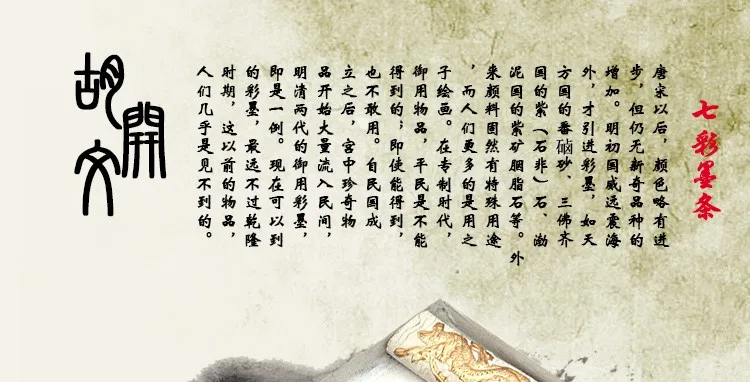 七彩墨条
唐宋以后，颜色略有进
步，但仍无新奇品种的
增加。明初国威远震海
外，才引进彩墨，如天
方国的番硇砂、三佛齐
国的紫（石非）石、渤
泥国的紫矿胭脂石等。外
来颜料固然有特殊用途
，而人们更多的是用之
子绘画。在专制时代，
御用物品，平民是不能
得到的；即使能得到，
也不敢用。自民国成
立之后，宫中珍奇物
品开始大量流入民间，
明清两代的御用彩墨，
即是一例。现在可以到
的彩墨，最远不过乾隆
时期，这以前的物品，
人们几乎是见不到的。
胡開文